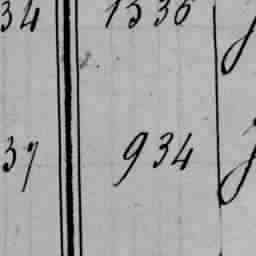 34 1336
37 934